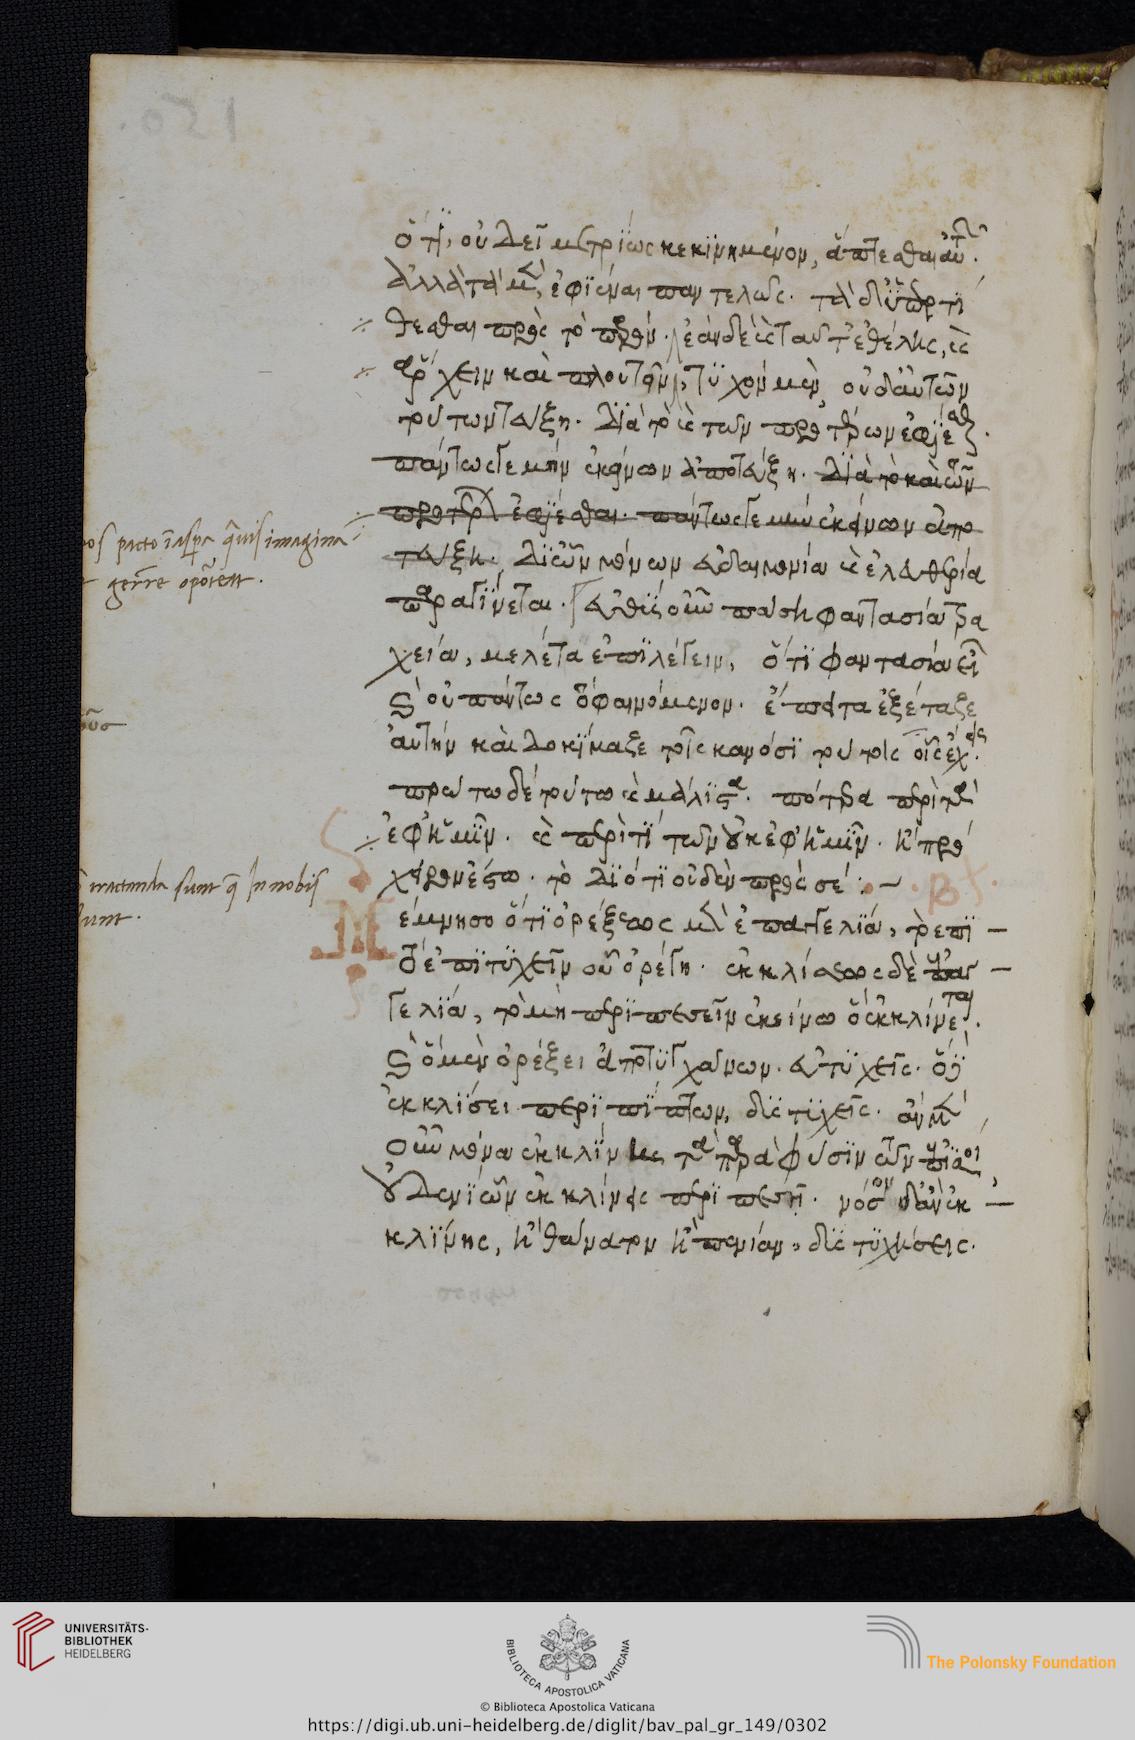 ὅτι, οὐ δεῖ μετρίως κεκινημένον, ἅπτεσθαι αὐτῶν.
ἀλλὰ τὰ μὲν, ἐφιέναι παντελῶς. τὰ δ' ὑπερτί
θεσθαι πρὸς τὸ παρόν. ἐὰν δὲ καὶ ταῦτ' ἐθέλῃς, καὶ
ἄρχειν καὶ πλουτεῖν, τυχὸν μὲν, οὐδ' αὐτῶν
τούτων τεύξῃ. διὰ τὸ καὶ τῶν προτέρων ἐφίεσθαι.
πάντως γε μὴν ἐκείνων ἀποτεύξῃ. διὰ τὸ καὶ τῶν
προτέρων ἐφίεσθαι. πάντως γε μὴν ἐκείνων ἀπο
τεύξῃ. δι' ὧν μόνων εὐδαιμονία καὶ ἐλευθερία
παραγίνεται. εὐθὺς οὖν πάσῃ φαντασίᾳ τρα
χείᾳ, μελέτα ἐπιλέγειν, ὅτι φαντασία εἶ
καὶ οὐ πάντως τὸ φαινόμενον. ἔπειτα ἐξέταζε
αὐτὴν καὶ δοκίμαζε τοῖς κανόσι τούτοις οἷς ἔχεις.
πρώτῳ δὲ τούτῳ καὶ μάλιστα. πότερα περὶ τὰ
ἐφ' ἡμῖν. καὶ περὶ τι τῶν οὐκ ἐφ' ἡμῖν. ἢ προ
χειρον ἔστω. τὸ διότι οὐδὲν πρὸς σέ :
Μ
έμνησο ὅτι ὀρέξεως μὲν ἐπαγγελία, τὸ ἐπι
τυχεῖν οὗ ὀρέγῃ. ἐκκλίσεως δὲ ἐπαγ
γελία, τὸ μὴ περιπεσεῖν ἐκείνῳ ὃ ἐκκλίνεται.
καὶ ὁ μὲν ὀρέξει ἀποτυγχάνων. ἀτυχεῖς. ὁ δὲ
ἐκκλίσει περιπίπτων, δυστυχεῖς. ἂν μὲν
οὖν μόνα ἐκκλίνῃς τὰ παρὰ φύσιν τῶν ἐπὶ σοί,
οὐδενὶ ὧν ἐκκλίνεις περιπεσῇ. νόσον δ' ἂν ἐκ
κλίνῃς, ἢ θάνατον ἢ πενίαν, δυστυχήσεις.
pacto quis imagina
oportent.
tractanda sunt que In nobis
sunt.
UNIVERSITÄTS-
BIBLIOTHEK
HEIDELBERG
BIBLIOTECA APOSTOLICA VATICANA
The Polonsky Foundation
© Biblioteca Apostolica Vaticana
https://digi.ub.uni-heidelberg.de/diglit/bav_pal_gr_149/0302